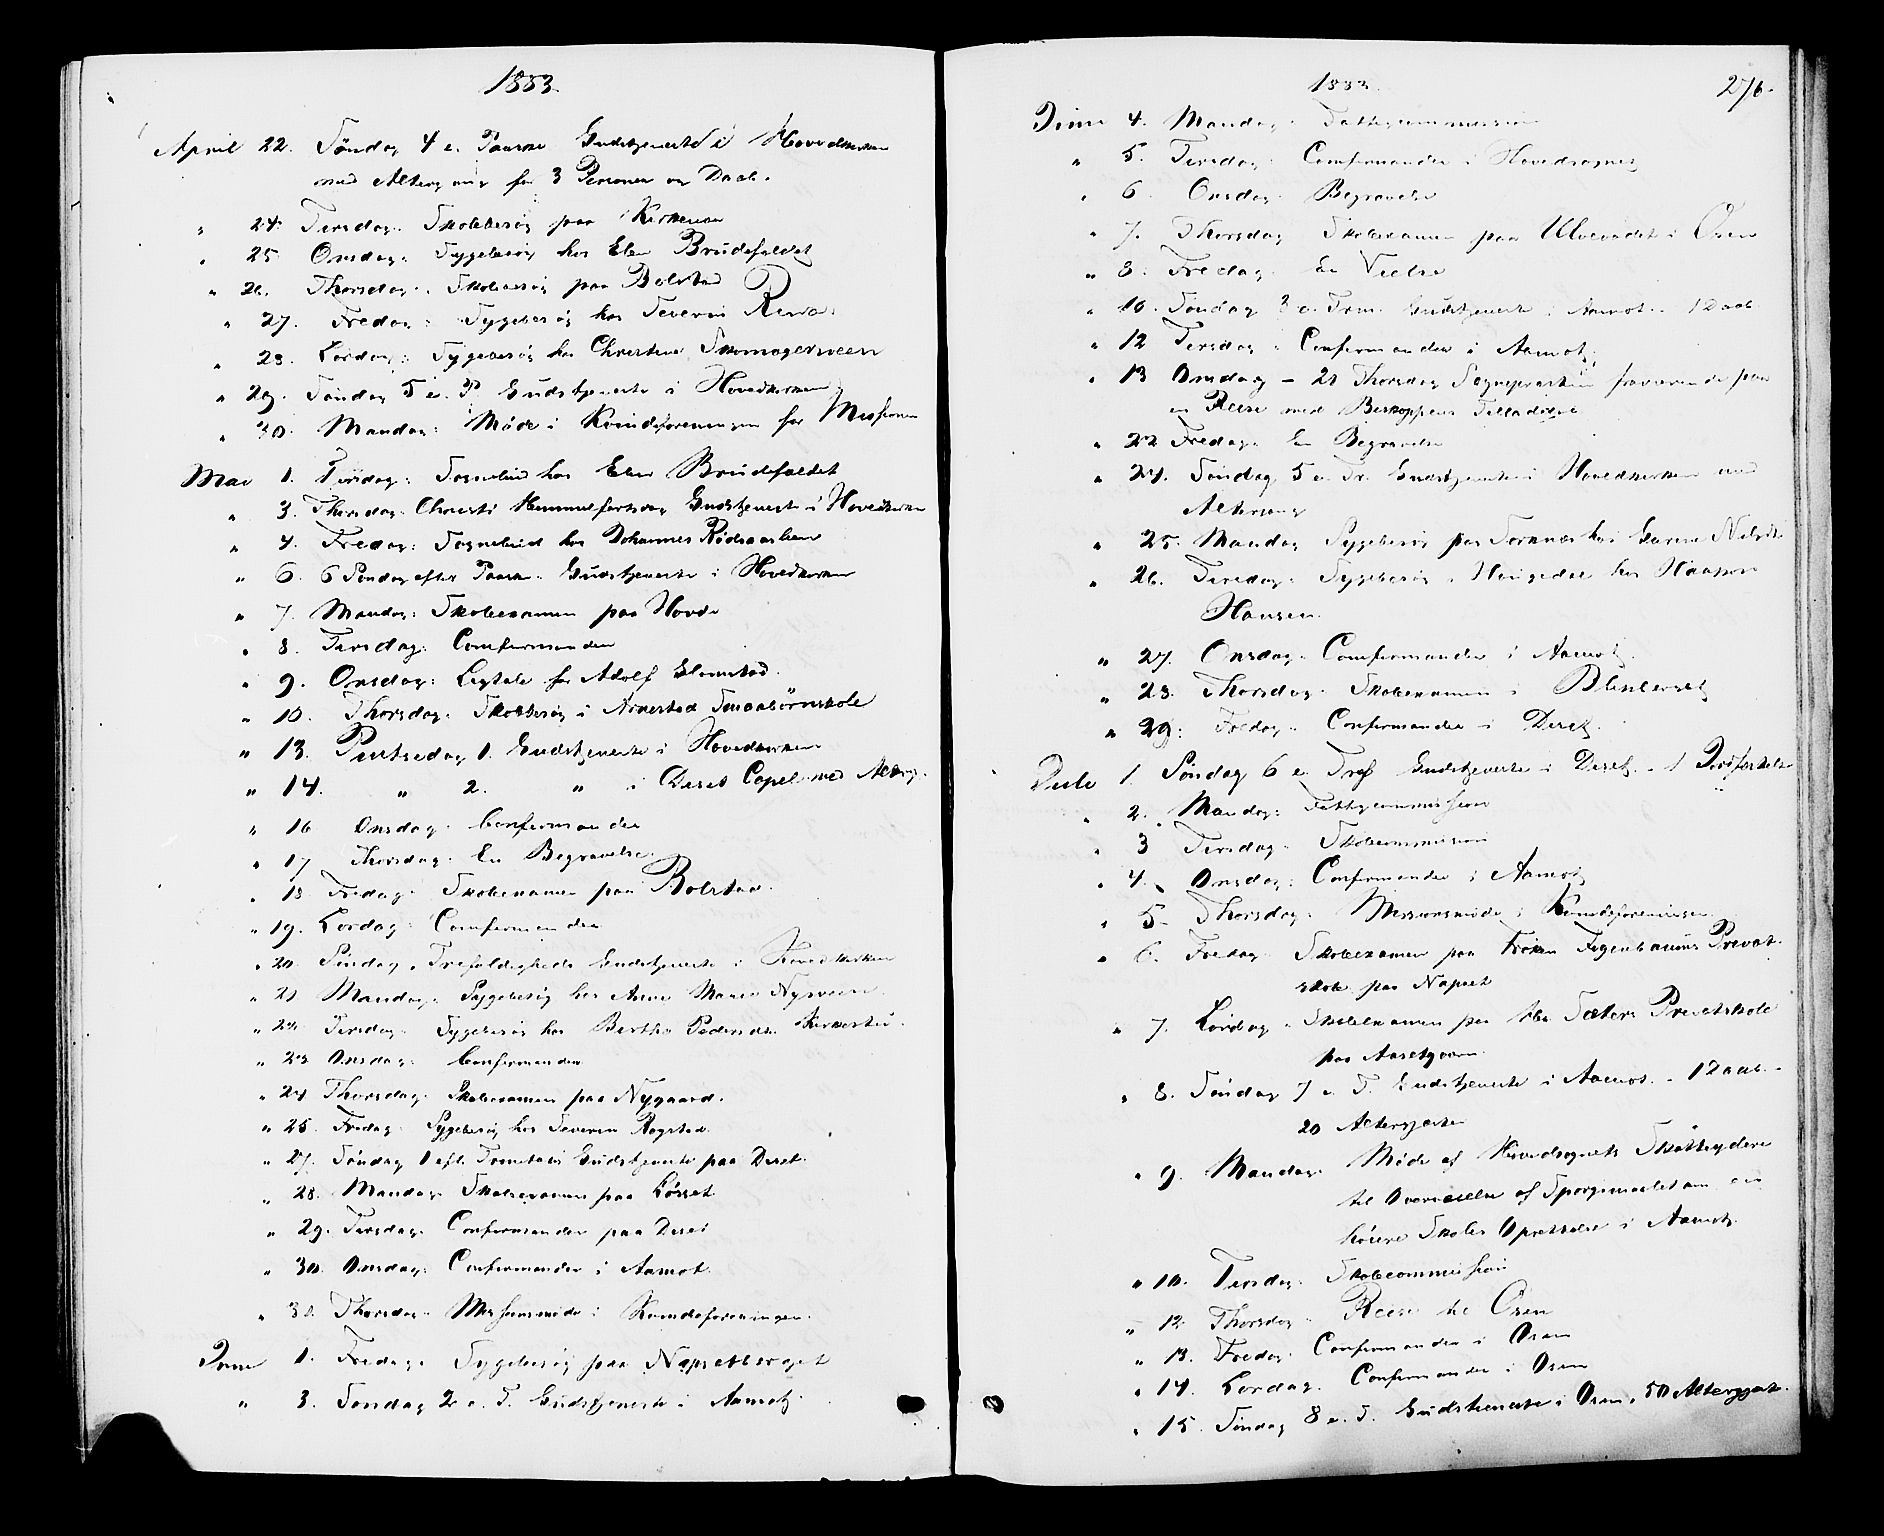 1883.
April 22. Søndag 4 e. Paaske Gudstjeneste i Hovedkirken
med Altergang for 3 Personer og Daab.
" 24. Tirsdag: Skolebesøg paa Kirkemoen
" 25. Onsdag: Sygebesøg hos Elen Brudefaldet
" 26. Thorsdag: Skolebesøg paa Bolstad
" 27. Fredag: Sygebesøg hos Severin
" 28. Lørdag: Sygebesøg hos Christine Skomagerveen
" 29. Søndag 5 e. P. Gudstjeneste i Hovedkirken
" 30. Mandag: Møde i Kvindeforeningen for Missionen
Mai 1. Tirsdag: Sognebud hos Elen Brudefaldet
" 3. Thorsdag: Christi Himmelfartsdag Gudstjeneste i Hovedkirken
" 4. Fredag: Sognebud hos Johannes Rødsaaslien
" 6. 6 Søndag efter Paaske. Gudstjeneste i Hovedkirken
" 7. Mandag: Skoleexamen paa Hovde
" 8. Tirsdag: Confirmander
" 9. Onsdag: Ligtale for Adolf Glomstad.
" 10. Thorsdag: Skolebesøg i Arnestad Smaabørnskole
" 13. Pintsedag 1. Gudstjeneste i Hovedkirken
" 14. " 2. " i Deset Capel med Alterg.
" 16 Onsdag. Confirmander
" 17 Thorsdag: En Begravelse.
" 18. Fredag: Skoleexamen paa Bolstad.
" 19. Lørdag: Confirmander
" 20 Søndag. Trefoldigheds Gudstjeneste i Hovedkirken
" 21 Mandag: Sygebesøg hos Anne Marie Nysveen.
" 22. Tirsdag: Sygebesøg hos Berthe Pedersdtr
" 23 Onsdag: Confirmander
" 24 Thorsdag: Skoleexamen paa Nygaard.
" 25. Fredag: Sygebesøg hos Severin Rogstad.
" 27. Søndag 1 eft. Trinitatis Gudstjeneste paa Deset.
" 28. Mandag: Skoleexamen paa Løsset
" 29. Tirsdag: Confirmander paa Deset
" 30. Onsdag: Confirmander i Aamot.
" 31. Thorsdag: Missionsmøde i Kvindeforeningen.
Juni 1. Fredag: Sygebesøg paa
" 3. Søndag 2 e. T. Gudstjeneste i Aamot.
1883.
276.
Juni 4. Mandag: Fattigcommission
" 5. Tirsdag: Confirmander i Hovedsognet
" 6. Onsdag: Begravelse
" 7. Thorsdag Skoleexamen paa Ulvevadet i Osen
" 8. Fredag: En Vielse
" 10. Søndag 3 e. Trin. Gudstjeneste i Aamot. - 1 Daab
" 12 Tirsdag: Confirmander i Aamot.
" 13 Onsdag - 21 Thorsdag Sognepræsten fraværende paa
en Reise med Biskoppens Tilladelse
" 22 Fredag: En Begravelse
" 24. Søndag 5 e. Tr. Gudstjeneste i Hovedkirken med
Altergang
" 25. Mandag Sygebesøg paa Sorknæs hos
" 26. Tirsdag: Sygebesøg i hos
Hansen.
" 27. Onsdag: Confirmander i Aamot.
" 28. Thorsdag: Skoleexamen i
" 29. Fredag: Confirmander i Deset.
Juli 1. Søndag 6 e. Tref Gudstjeneste i Deset. - 1
" 2. Mandag: Fattigcommission
" 3 Tirsdag: Skolecommission
" 4. Onsdag: Confirmander i Aamot
" 5. Thorsdag: Missionsmøde i Kvindeforeningen
" 6. Fredag: Skoleexamen paa Frøken Fegenbaums Privat-
skole paa Napset
" 7. Lørdag: Skoleexamen paa Sæters Privatskole
paa Aasetgaarden.
" 8. Søndag 7 e. T. Gudstjeneste i Aamot. - 1 Daab. -
20 Altergjæster
" 9. Mandag: Møde af Hovedsognets Skatteydere
til Overveielse af Spørgsmaalet om en
høiere Skoles Oprettelse i Aamot.
" 10. Tirsdag. Skolecommission
" 12. Thorsdag. Reise til Osen
" 13. Fredag: Confirmander i Osen
" 14. Lørdag: Confirmander i Osen
" 15. Søndag 8 e. T. Gudstjeneste i Osen, 50 Altergjæst.